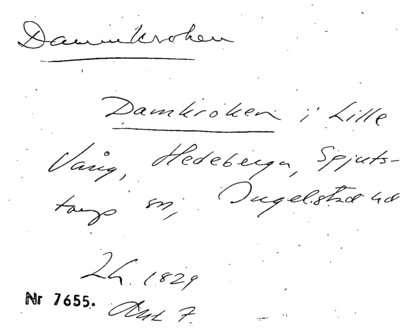 Dammkroken
Damkroken i Lille
Vång, Hedeberga, Spjuts-
torps sn, Ingelstad hd
Lh. 1829
Nr 7655. Akt 7.